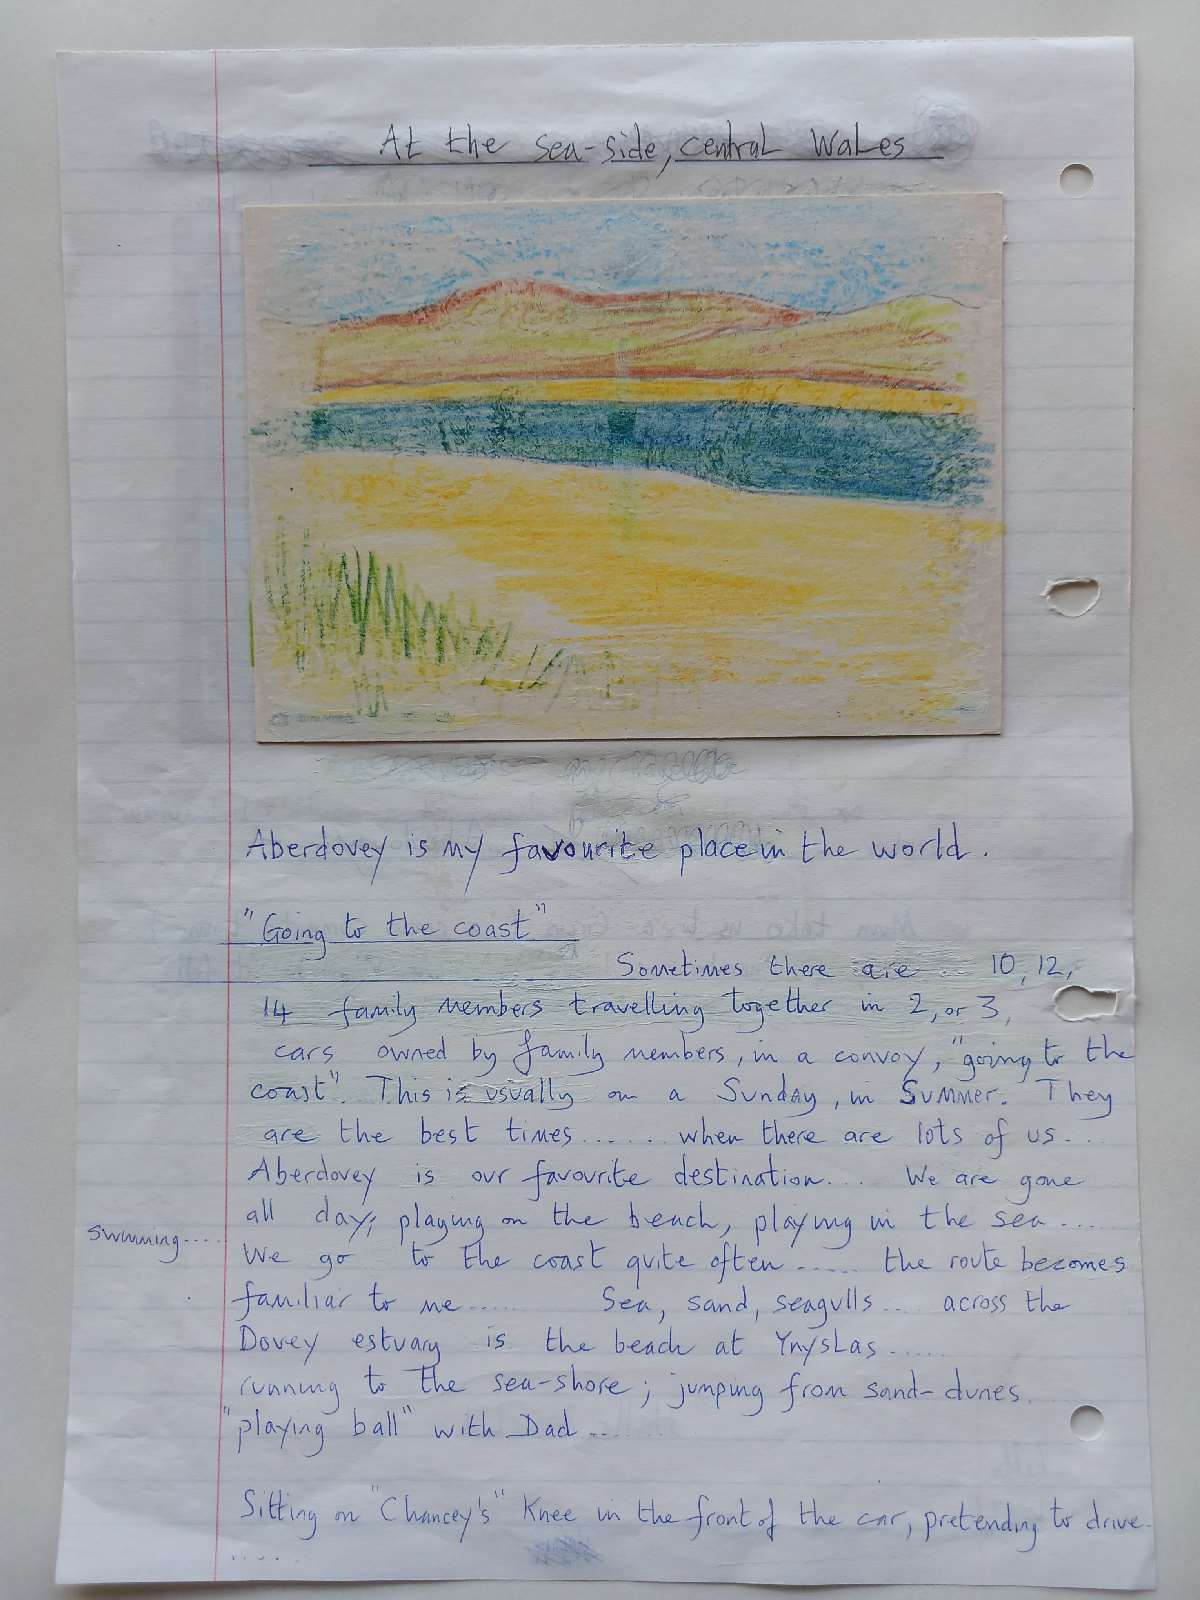 At the sea-side, central Wales
Aberdovey is my favourite place in the world.
"Going to the coast"
Sometimes there are .. 10, 12,
14 family members travelling together in 2, or 3,
cars owned by family members, in a convoy, "going to the
coast". This is usually on a Sunday, in Summer. They
are the best times....... when there are lots of us....
Aberdovey is our favourite destination.... We are gone
all day; playing on the beach, playing in the sea....
swimming....
We go to the coast quite often...... the route becomes
familiar to me...... Sea, sand, seagulls.... across the
Dovey estuary is the beach at Ynyslas......
running to the sea-shore; jumping from sand-dunes....
"playing ball" with Dad.......
Sitting on "Chancey's" Knee in the front of the car, pretending to drive.
.....